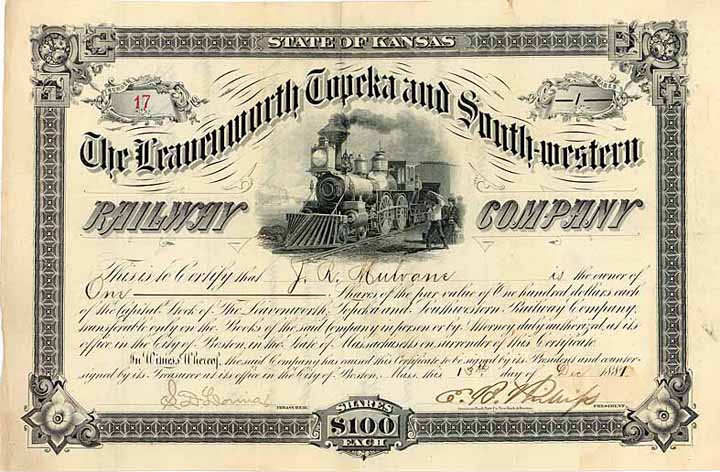 STATE OF KANSAS
17
1
The Leavenworth Topeka and South-western
RAILWAY COMPANY
This is to Certify that J. R. Mulvane is the owner of
One Shares of the par value of One hundred dollars each
of the Capital Stock of The Leavenworth, Topeka and Southwestern Railway Company,
transferable only on the Books of the said Company in person or by Attorney, duly authorized, at its
office in the City of Boston, in the State of Massachusetts on surrender of this Certificate.
In Witness Whereof, the said Company has caused this Certificate to be signed by its President and counter-
signed by its Treasurer at its office in the City of Boston, Mass. this 13th day of Dec 188
TREASURER.
PRESIDENT.
SHARES
$100
EACH